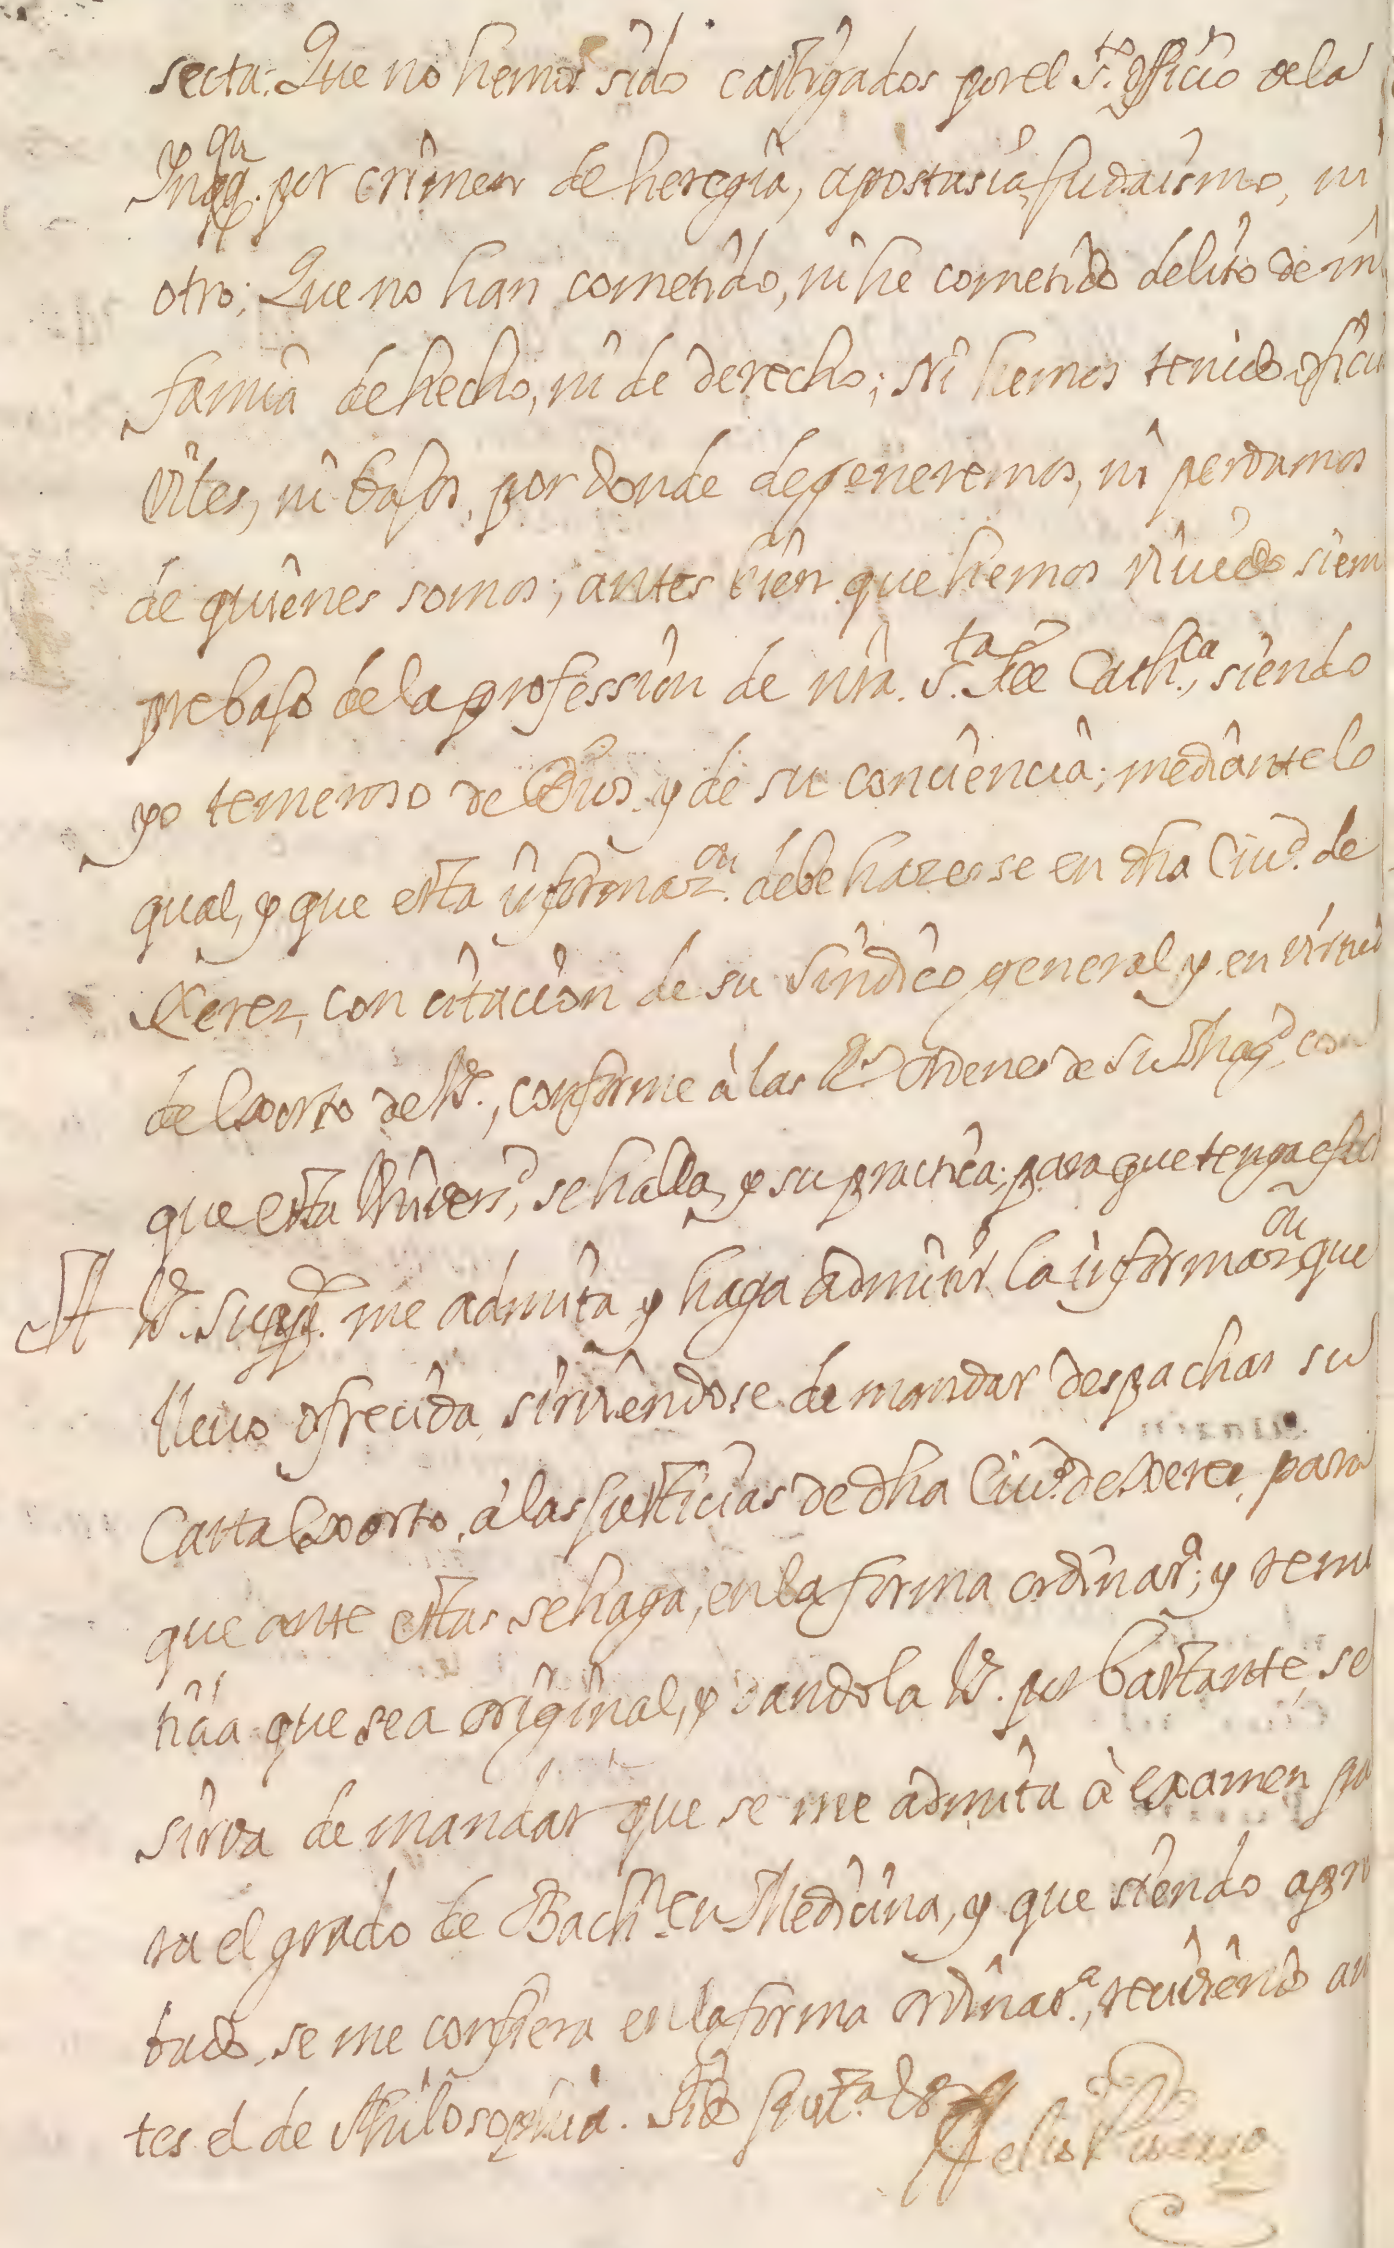 secta: Que no hemos sido castigados por el S.to officio de la
Inqq.on por crimen de heregia, apostasia, Judaismo, ni
otro; Que no han cometido, ni he cometido delito de in
famia de hecho, ni de derecho; ni hemos tenido ofici
viles, ni bajos, por donde degeneremos, ni perdamos
de quienes somos; antes bien que hemos vivido siem
pre bajo de la profession de nra. S.ta Fee Cath.ca, siendo
yo temeroso de Dios y de su conciencia; mediante lo
qual, y que esta informaz.on debe hazerse en dha Ciud. de
Xerez, con citacion de su sindico general y en virtud
del exorto de V., conforme à las R.s ordenes de su Mag.d con
que esta Univers.d se halla, y su practica; para que tenga efect
A V. supp.co me admita y haga admitir la informaz.on que
llevo ofrecida, sirviendose de mandar despachar su
Carta exorto, à las Justicias de dha Ciud. de Xerez, para
que ante estas se haga, en la forma ordinar.a; y remi
tida que sea original, y dandola V. por bastante, se
sirva de mandar que se me admita à examen pa
ra el grado de Bach.r en Medicina, y que siendo apro
bado, se me confiera en la forma ordinar.a, reciviendo an
tes el de Philosophia. Pido Just.a &
Felis